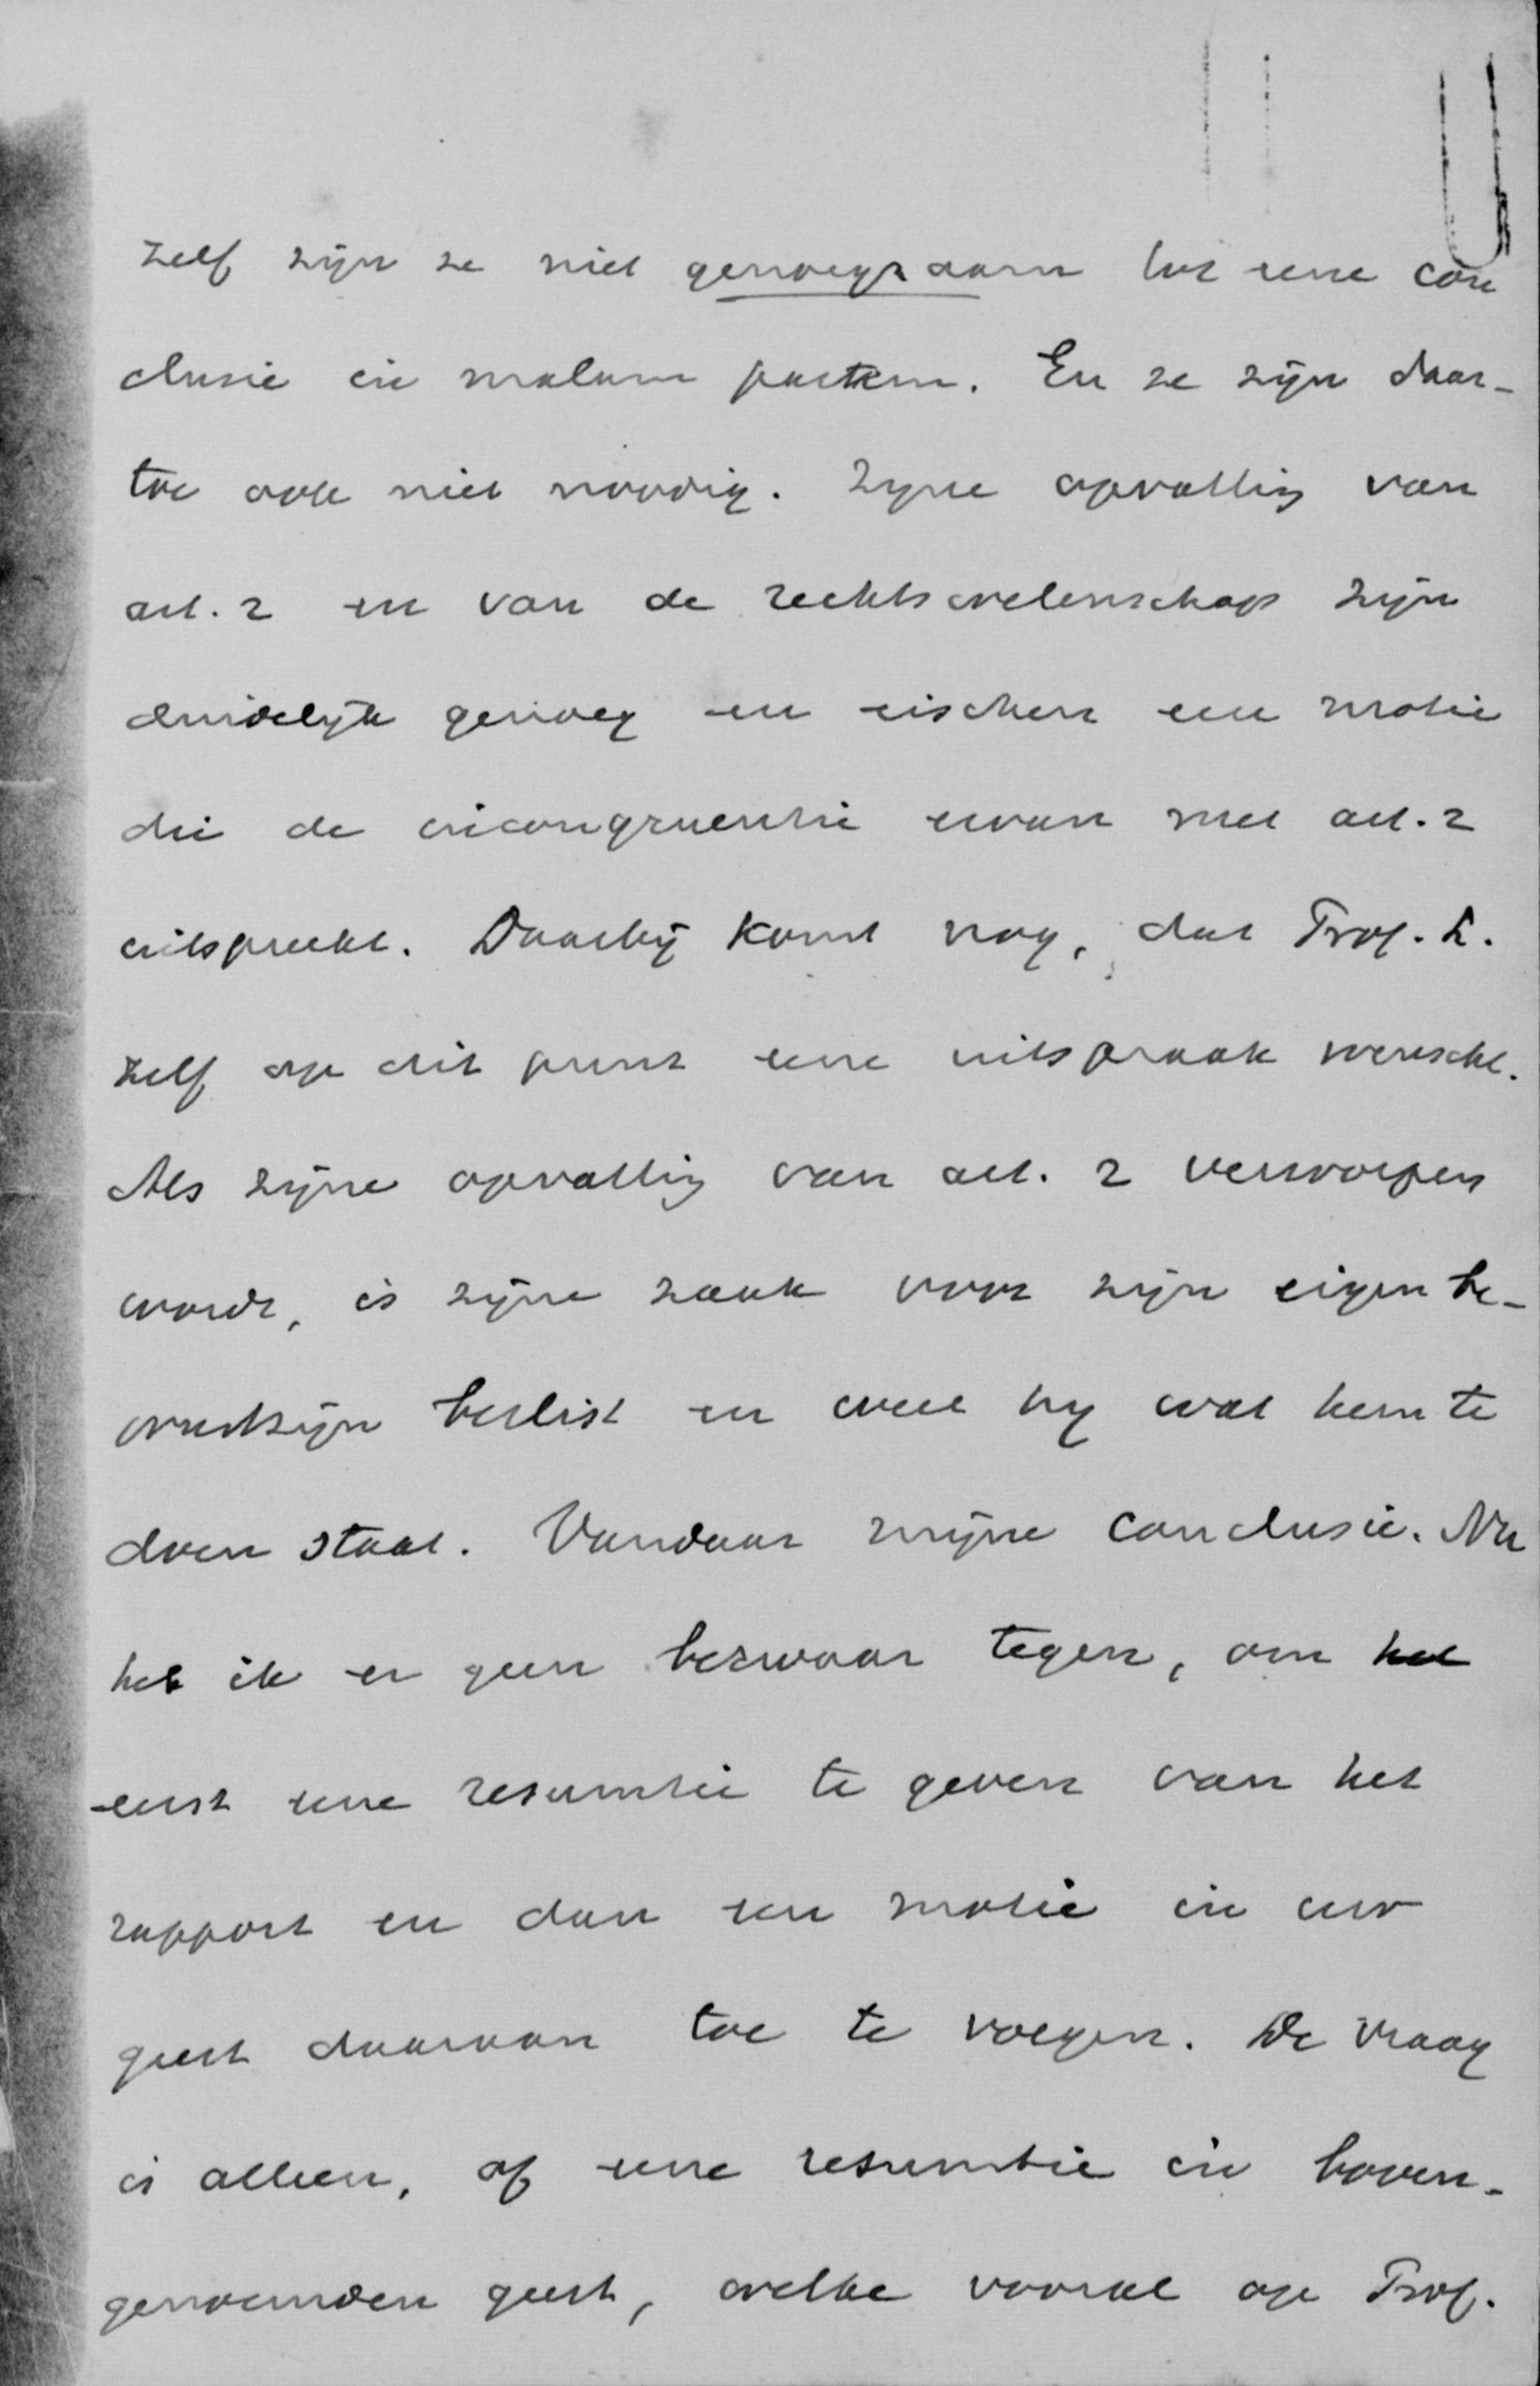 zelf zijn ze niet genoegzaam tot eene con
clusie in malam partem. En ze zijn daar-
toe ook niet noodig. Zijne opvatting van
art. 2 en van de rechtswetenschap zijn
duidelijk genoeg en eischen een motie
die de incongruentie ervan met art. 2
uitspreekt. Daarbij komt nog, dat Prof. L.
zelf op dit punt eene uitspraak wenscht.
Als zijne opvatting van art. 2 verworpen
wordt, is zijne zaak voor zijn eigen be-
wustzijn beslist en weet hij wat hem te
doen staat. Vandaar mijne conclusie. Nu
heb ik er geen bezwaar tegen, om het
eerst eene resumtie te geven van het
rapport en dan een motie in uw
geest daaraan toe te voegen. De vraag
is alleen, of eene resumtie in boven-
genoemden geest, welke vooral op Prof.